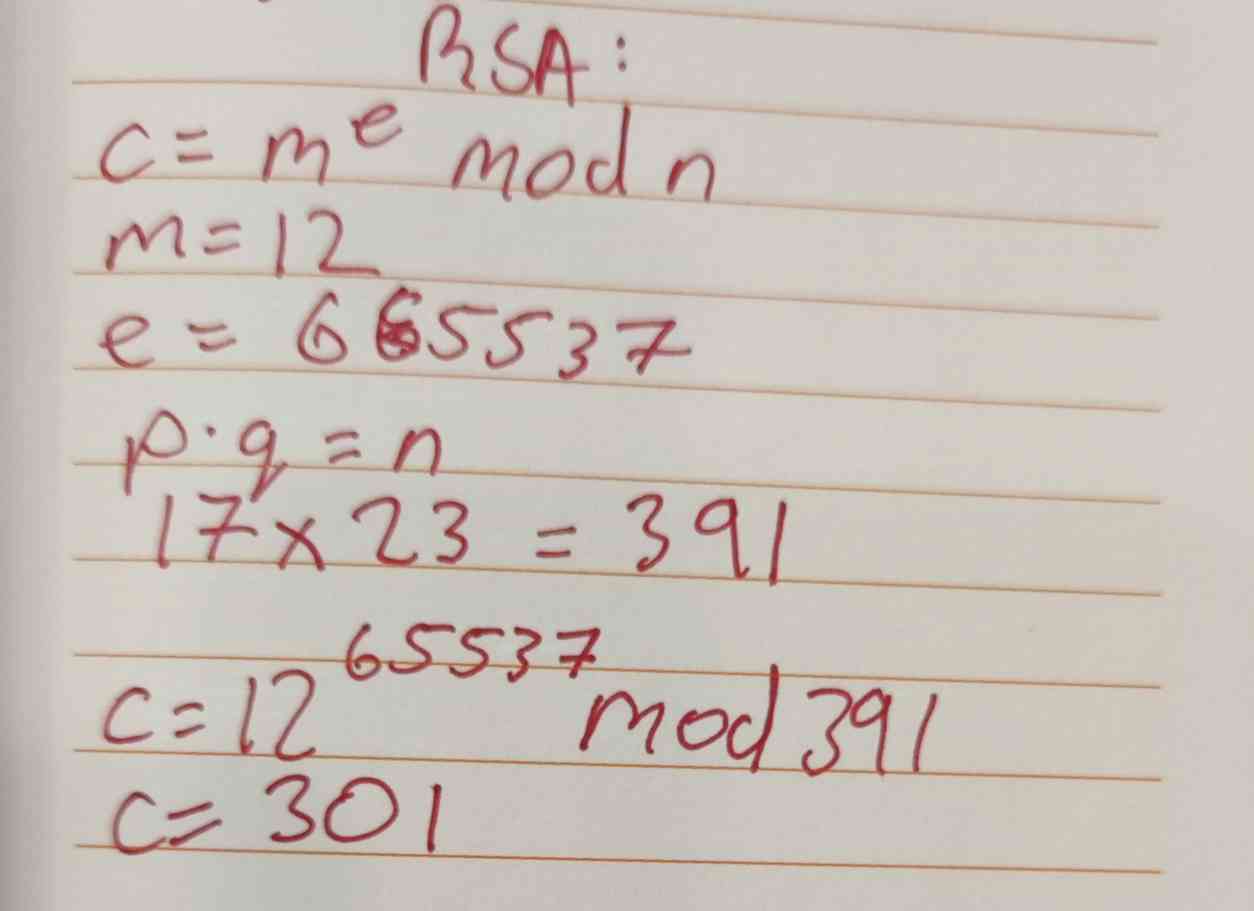 RSA:
c = m^e mod n
m = 12
e = 665537
p · q = n
17 × 23 = 391
c = 12^65537 mod 391
c = 301